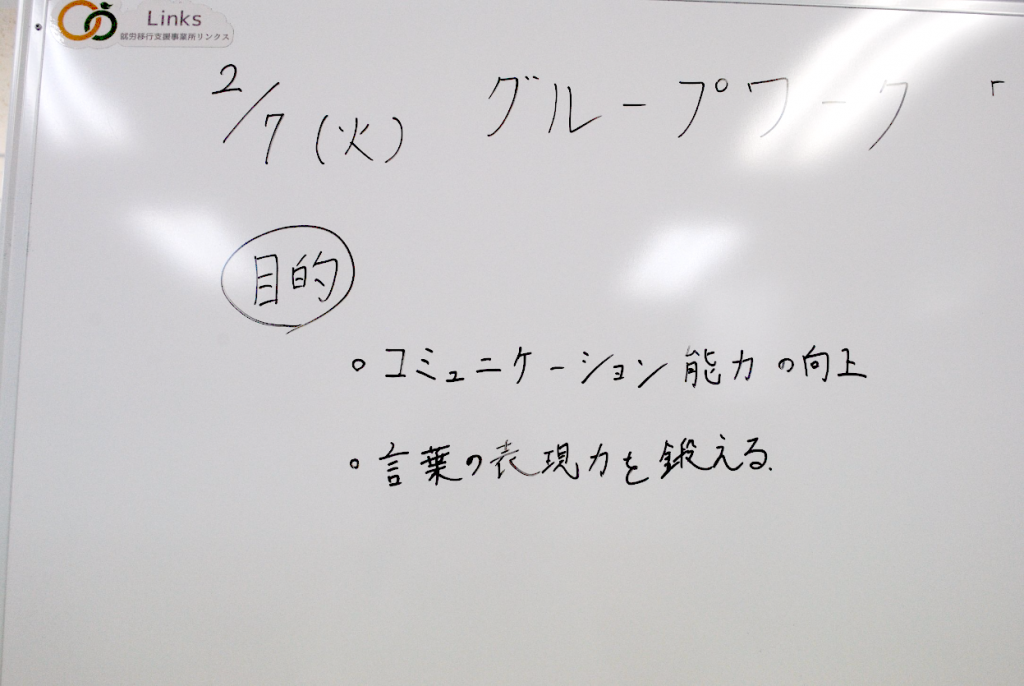 Links
就労移行支援事業所リンクス
2/7(火) グループワーク 「
目的
○ コミュニケーション能力の向上
○ 言葉の表現力を鍛える.